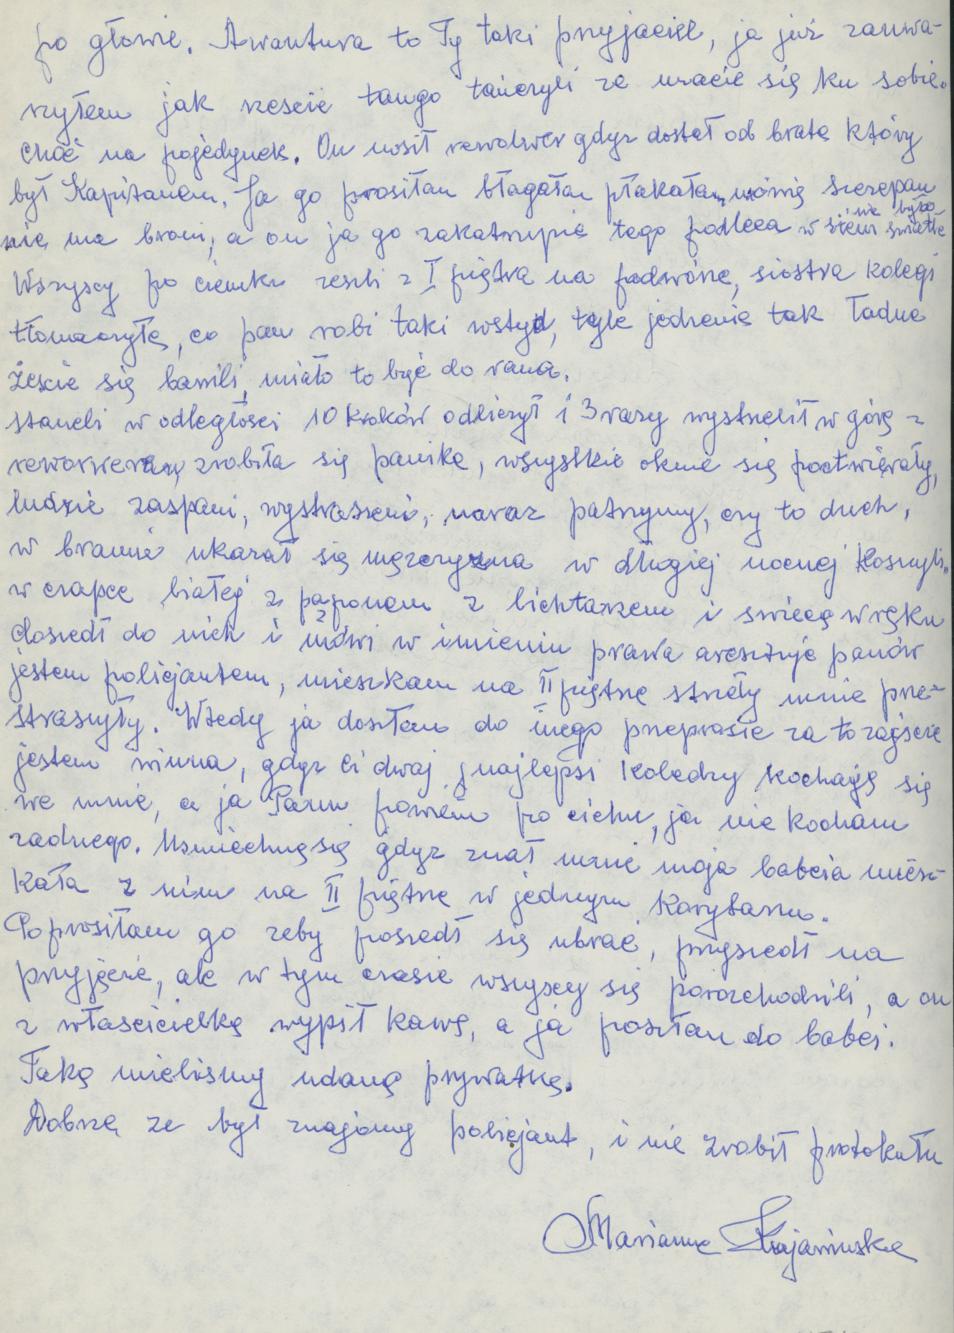 po głowie. Awantura to Ty taki przyjaciel, ja już zauwa-
rzyłem jak reście tango tańczyli że macie się ku sobie.
Choć na pojedynek. On nosił rewolwer gdyż dostał od brata który
był Kapitanem. Ja go prosiłam błagałam płakałam, mówię Szczepan
nie ma broni, a on ja go zakatrupię tego podleca w sieni nie było światła
Wszyscy po ciemku zeszli z I piętra na podwórze, siostra kolegi
tłomaczyła, co pan robi taki wstyd, tyle jedzenia tak ładnie
żeście się bawili, miało to być do rana.
Staneli w odległości 10 kroków odliczył i 3 razy wystrzelił w górę z
reworweru, zrobiła się panika, wszystkie okna się pootwierały,
ludzie zaspani, wystraszeni, naraz patrzymy, czy to duch,
w bramie ukazał się męzczyzna w długiej nocnej koszuli.
w czapce białej z pąponem z lichtarzem i świecą w ręku
doszedł do nich i mówi w imieniu prawa aresztuję panów
jestem policjantem, mieszkam na II piętrze strzały mnie prze-
straszyły. Wtedy ja doszłam do niego przeprasić za to zajście
jestem winna, gdyż ci dwaj najlepsi koledzy kochają się
we mnie, a ja Panu powiem po cichu, ja nie kocham
żadnego. Uśmiechną się gdyż znał mnie moja babcia miesz-
kała z nim na II piętrze w jednym korytarzu.
Poprosiłam go żeby poszedł się ubrać, przyszedł na
przyjęcie, ale w tym czasie wszyscy się porozchodzili, a on
z właścicielką wypił kawę, a ja poszłam do babci.
Taką mieliśmy udaną prywatkę.
Dobrze że był znajomy policjant, i nie zrobił protokułu
Marianna Krajaniuska